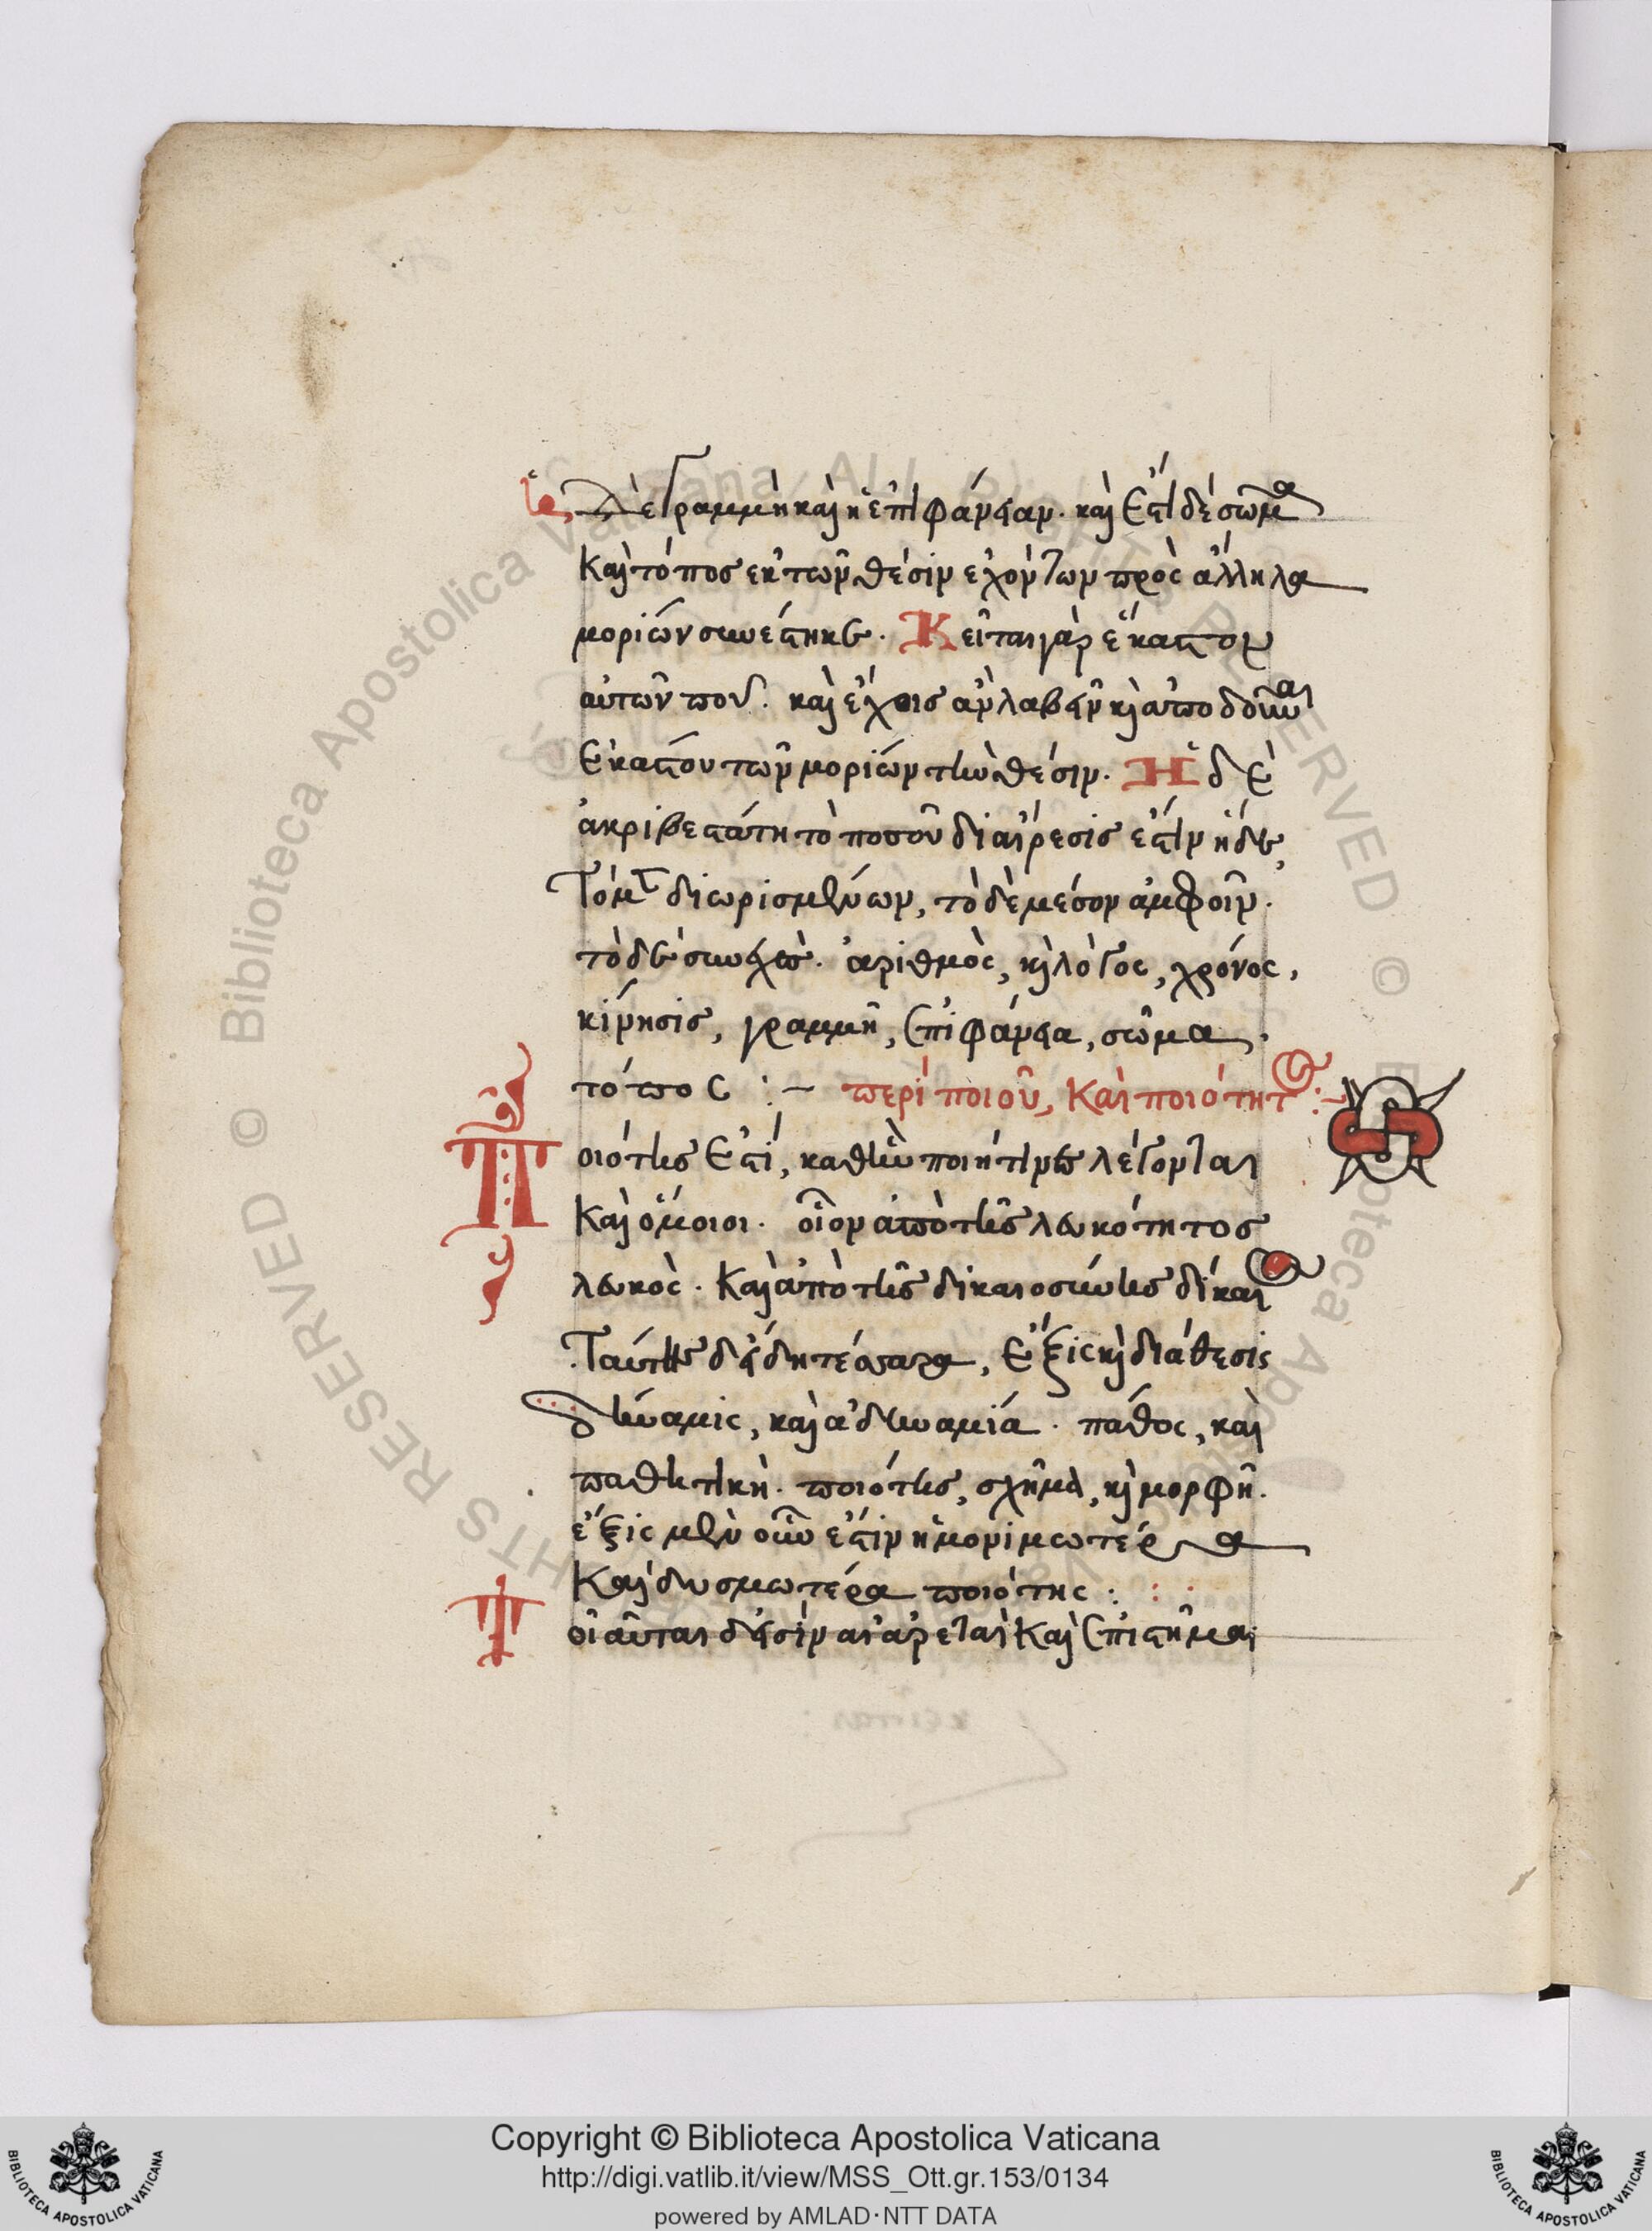 δὲ γραμμὴ καὶ ἡ ἐπιφάνειαν. καὶ ἔτι δὲ σῶμα
Καὶ τόπος ἐκ τῶν θέσιν ἐχόντων πρὸς ἄλληλα
μορίων συνέστηκε. Κεῖται γὰρ ἕκαστον
αὐτῶν που. καὶ ἔχοις ἂν λαβεῖν κὶ ἀποδοῦναι
Ἑκάστου τῶν μορίων τὴν θέσιν. Ἡ δὲ
ἀκριβεστάτη τὸ ποσοῦ διαίρεσις ἐστὶν ἥδε,
Τὸ μὲν διωρισμένων, τὸ δὲ μέσον ἀμφοῖν.
τὸ δὲ συνεχὲς. ἀριθμὸς, κὶ λόγος, χρόνος,
κίνησις, γραμμὴ, ἐπιφάνεια, σῶμα,
τόπος :~ περὶ ποιοῦ, Καὶ ποιότητος :~
Ποιότης ἐστί, καθ' ἣν ποιήτινες λέγονται
Καὶ ὅμοιοι. οἷον ἀπὸ τῆς λευκότητος
λευκὸς. Καὶ ἀπὸ τῆς δικαιοσύνης δίκαιος
Ταύτης δ' εἴδη τέσσαρα, Ἕξις κὶ διάθεσις
Δύναμις, καὶ ἀδυναμία. πάθος, καὶ
παθητικὴ. ποιότης, σχῆμα, κὶ μορφή.
ἕξις μὲν οὖν ἐστὶν ἡ μονιμωτέρα
Καὶ δυσμωτέρα ποιότης :
Τοιαῦται δ' εἰσὶν αἱ ἀρεταὶ Καὶ ἐπιστῆμαι
Copyright © Biblioteca Apostolica Vaticana
http://digi.vatlib.it/view/MSS_Ott.gr.153/0134
powered by AMLAD·NTT DATA
BIBLIOTECA APOSTOLICA VATICANA
BIBLIOTECA APOSTOLICA VATICANA